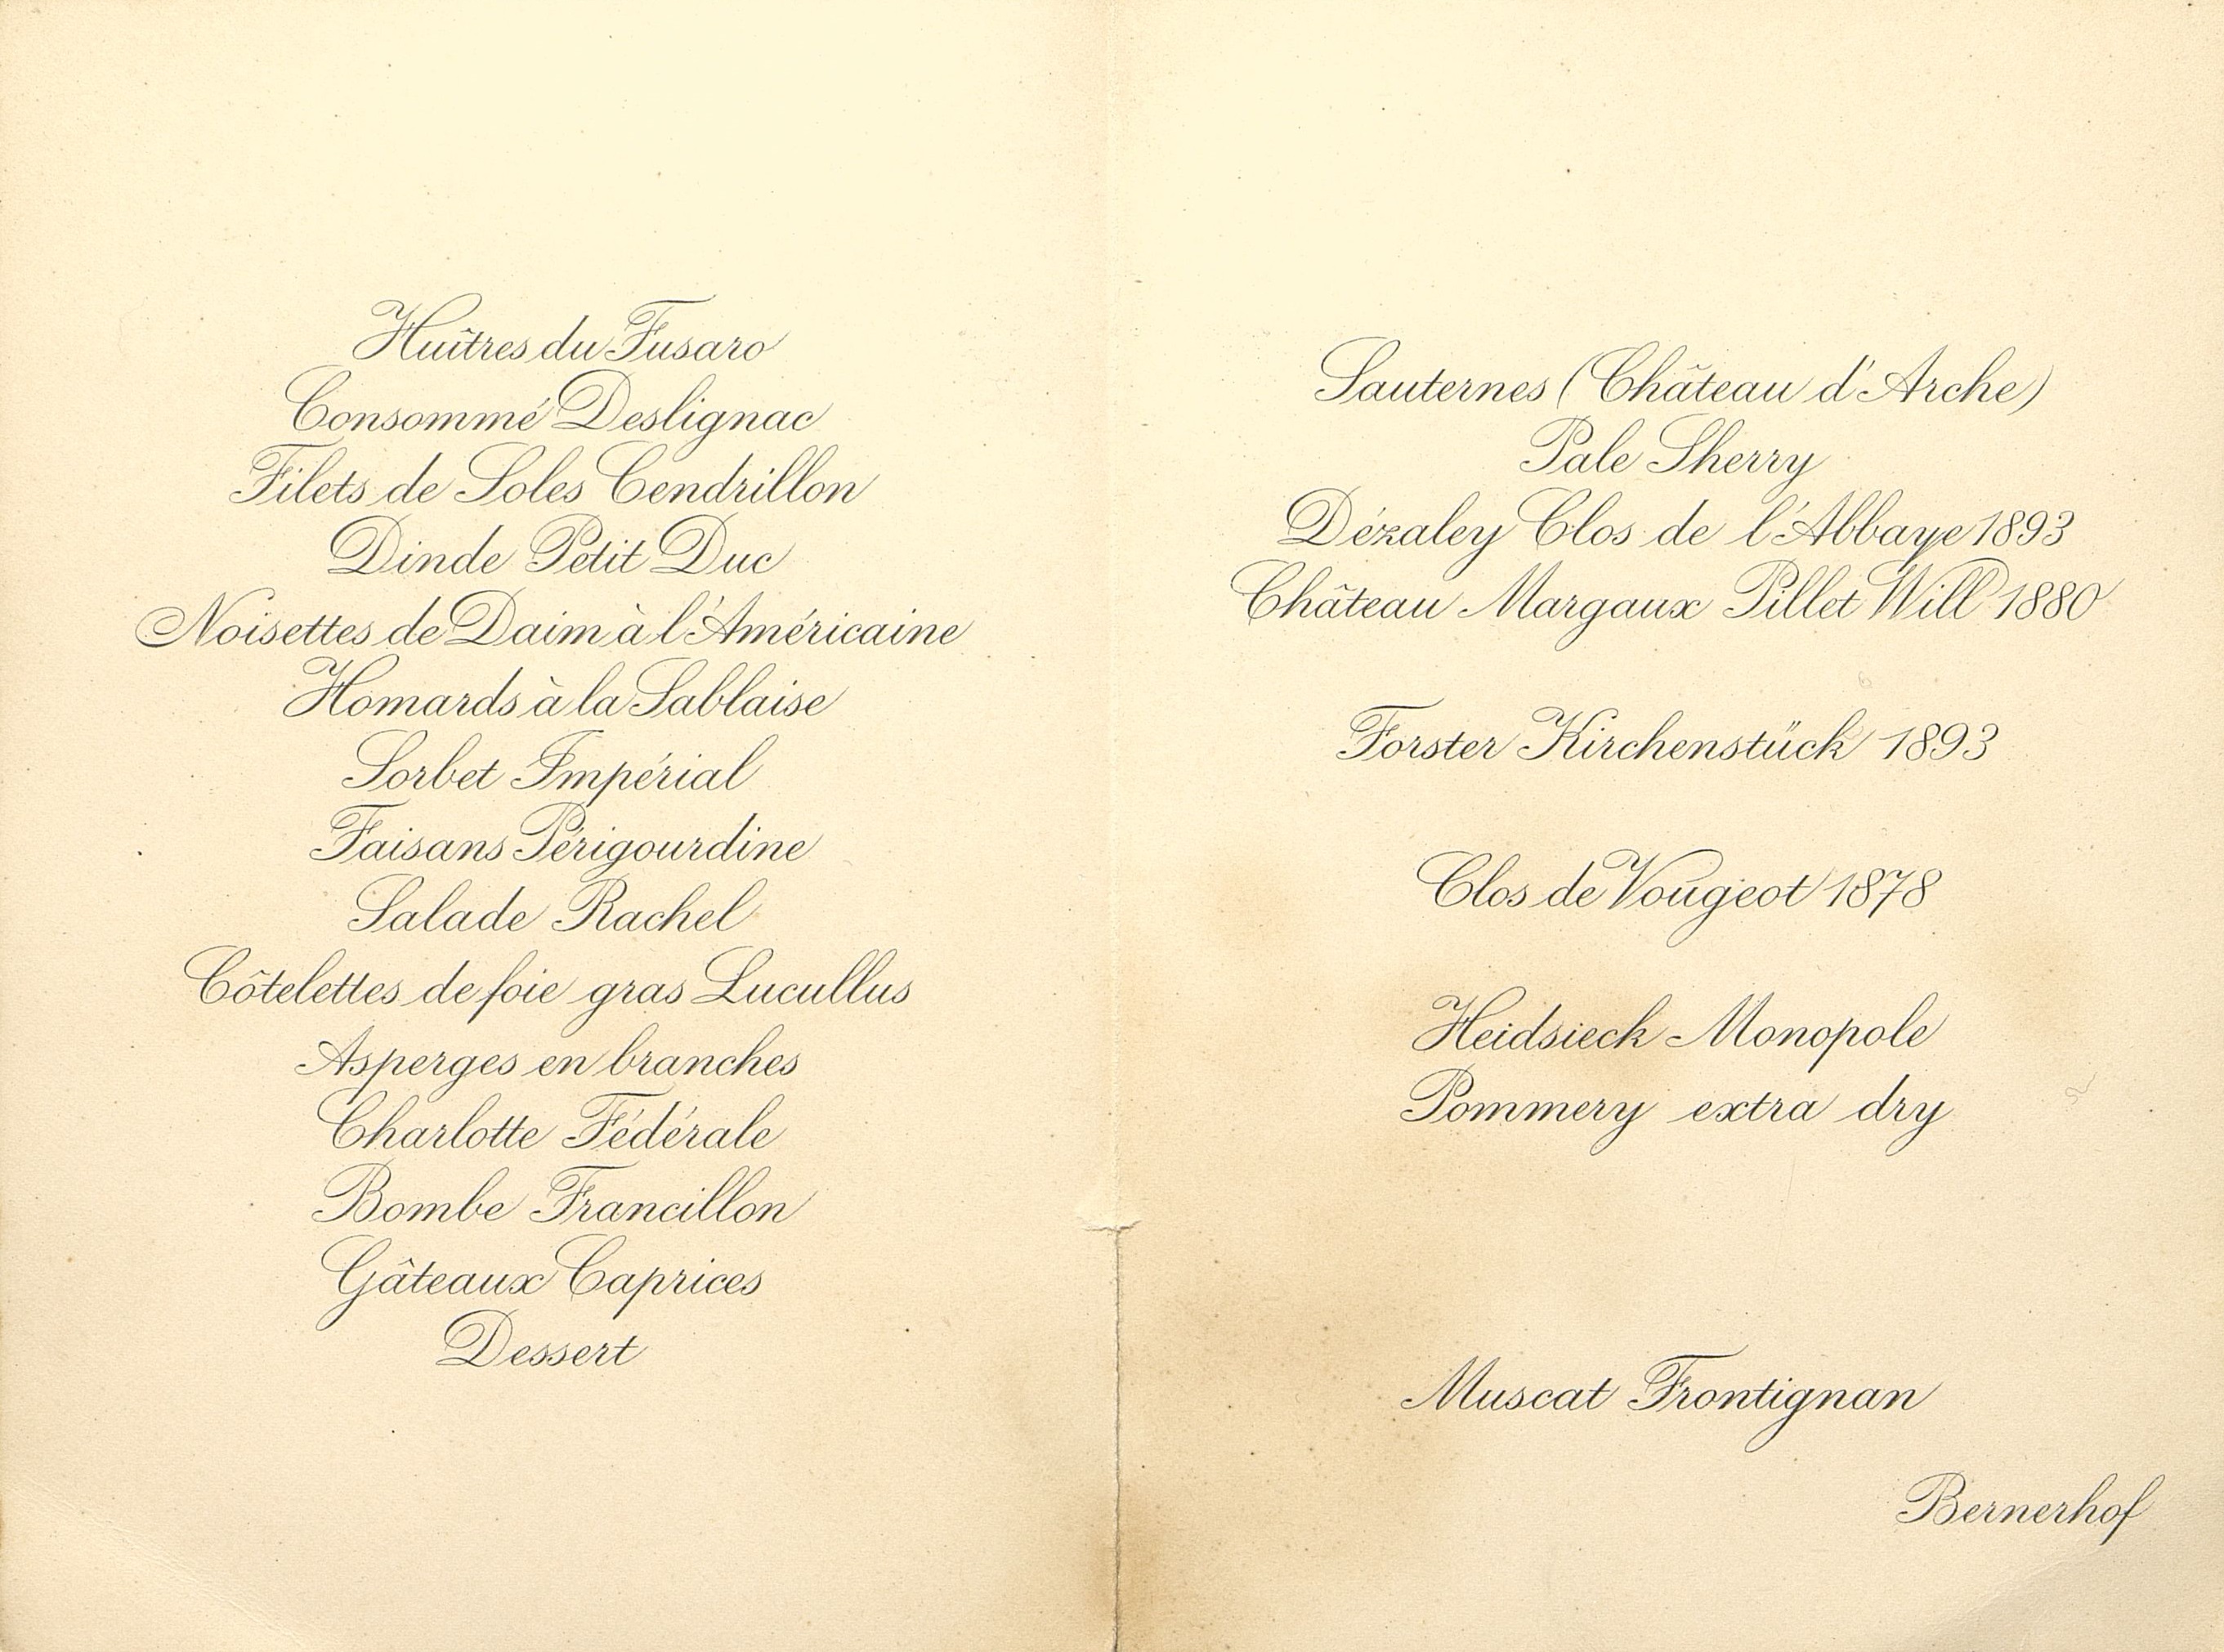 Huîtres du Fusaro
Consommé Deslignac
Filets de Soles Cendrillon
Dinde Petit Duc
Noisettes de Daim à l'Américaine
Homards à la Sablaise
Sorbet Impérial
Faisans Périgourdine
Salade Rachel
Côtelettes de foie gras Lucullus
Asperges en branches
Charlotte Fédérale
Bombe Francillon
Gâteaux Caprices
Dessert
Sauternes (Château d'Arche)
Pale Sherry
Dézaley Clos de l'Abbaye 1893
Château Margaux Pillet Will 1880
Forster Kirchenstück 1893
Clos de Vougeot 1878
Heidsieck Monopole
Pommery extra dry
Muscat Frontignan
Bernerhof